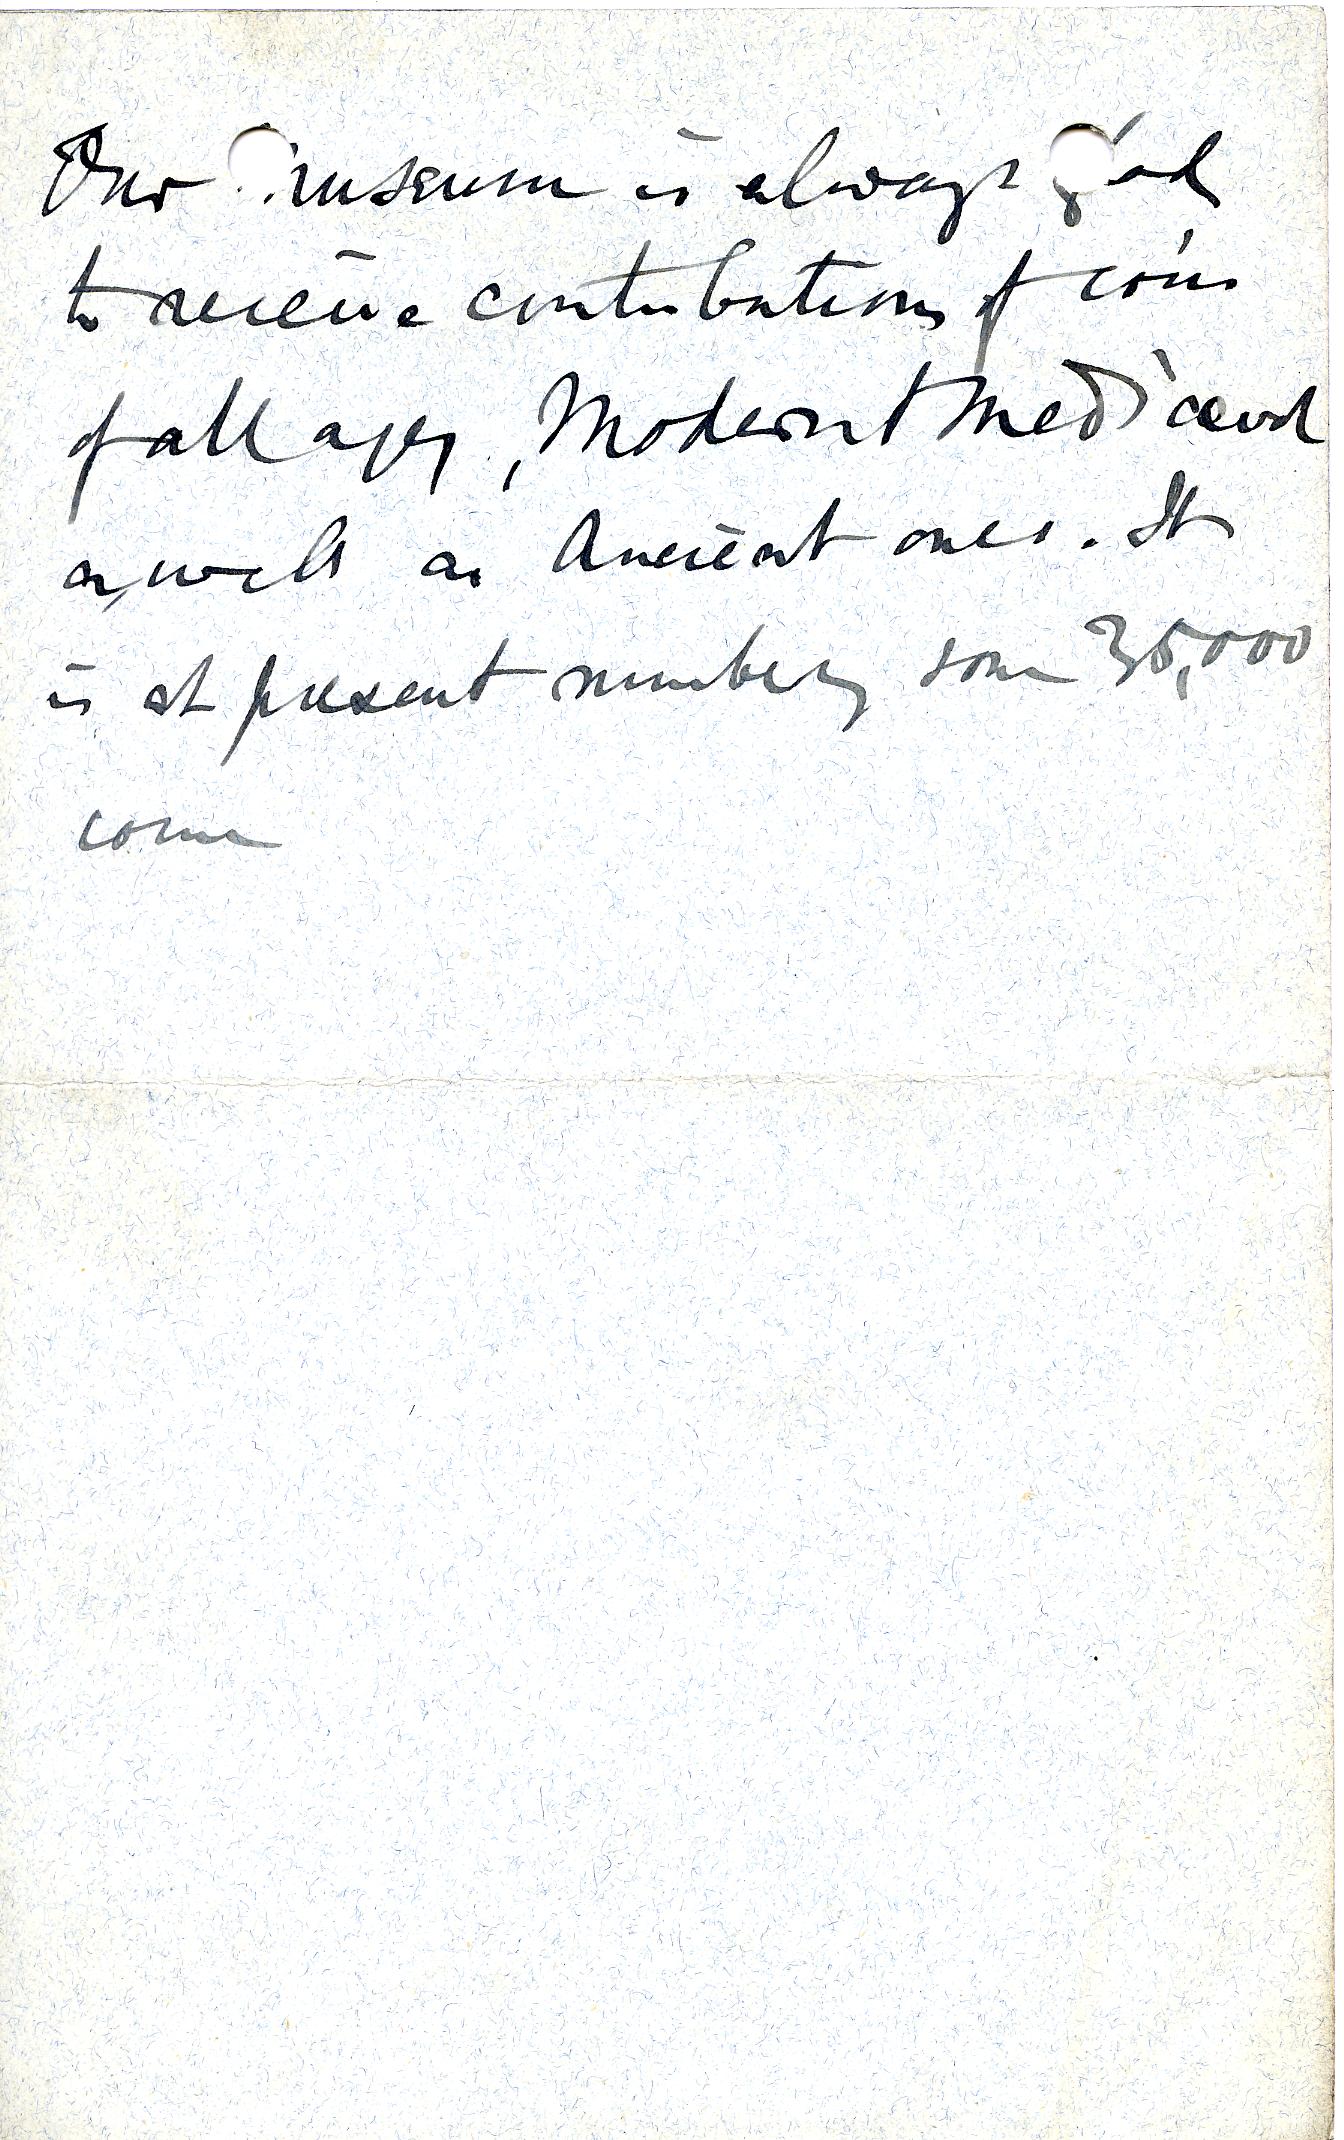 Our museum is always glad
to receive contributions of coins
of all ages, Modern & Mediaeval
as well as Ancient ones. It
is at present numbers some 35,000
coins